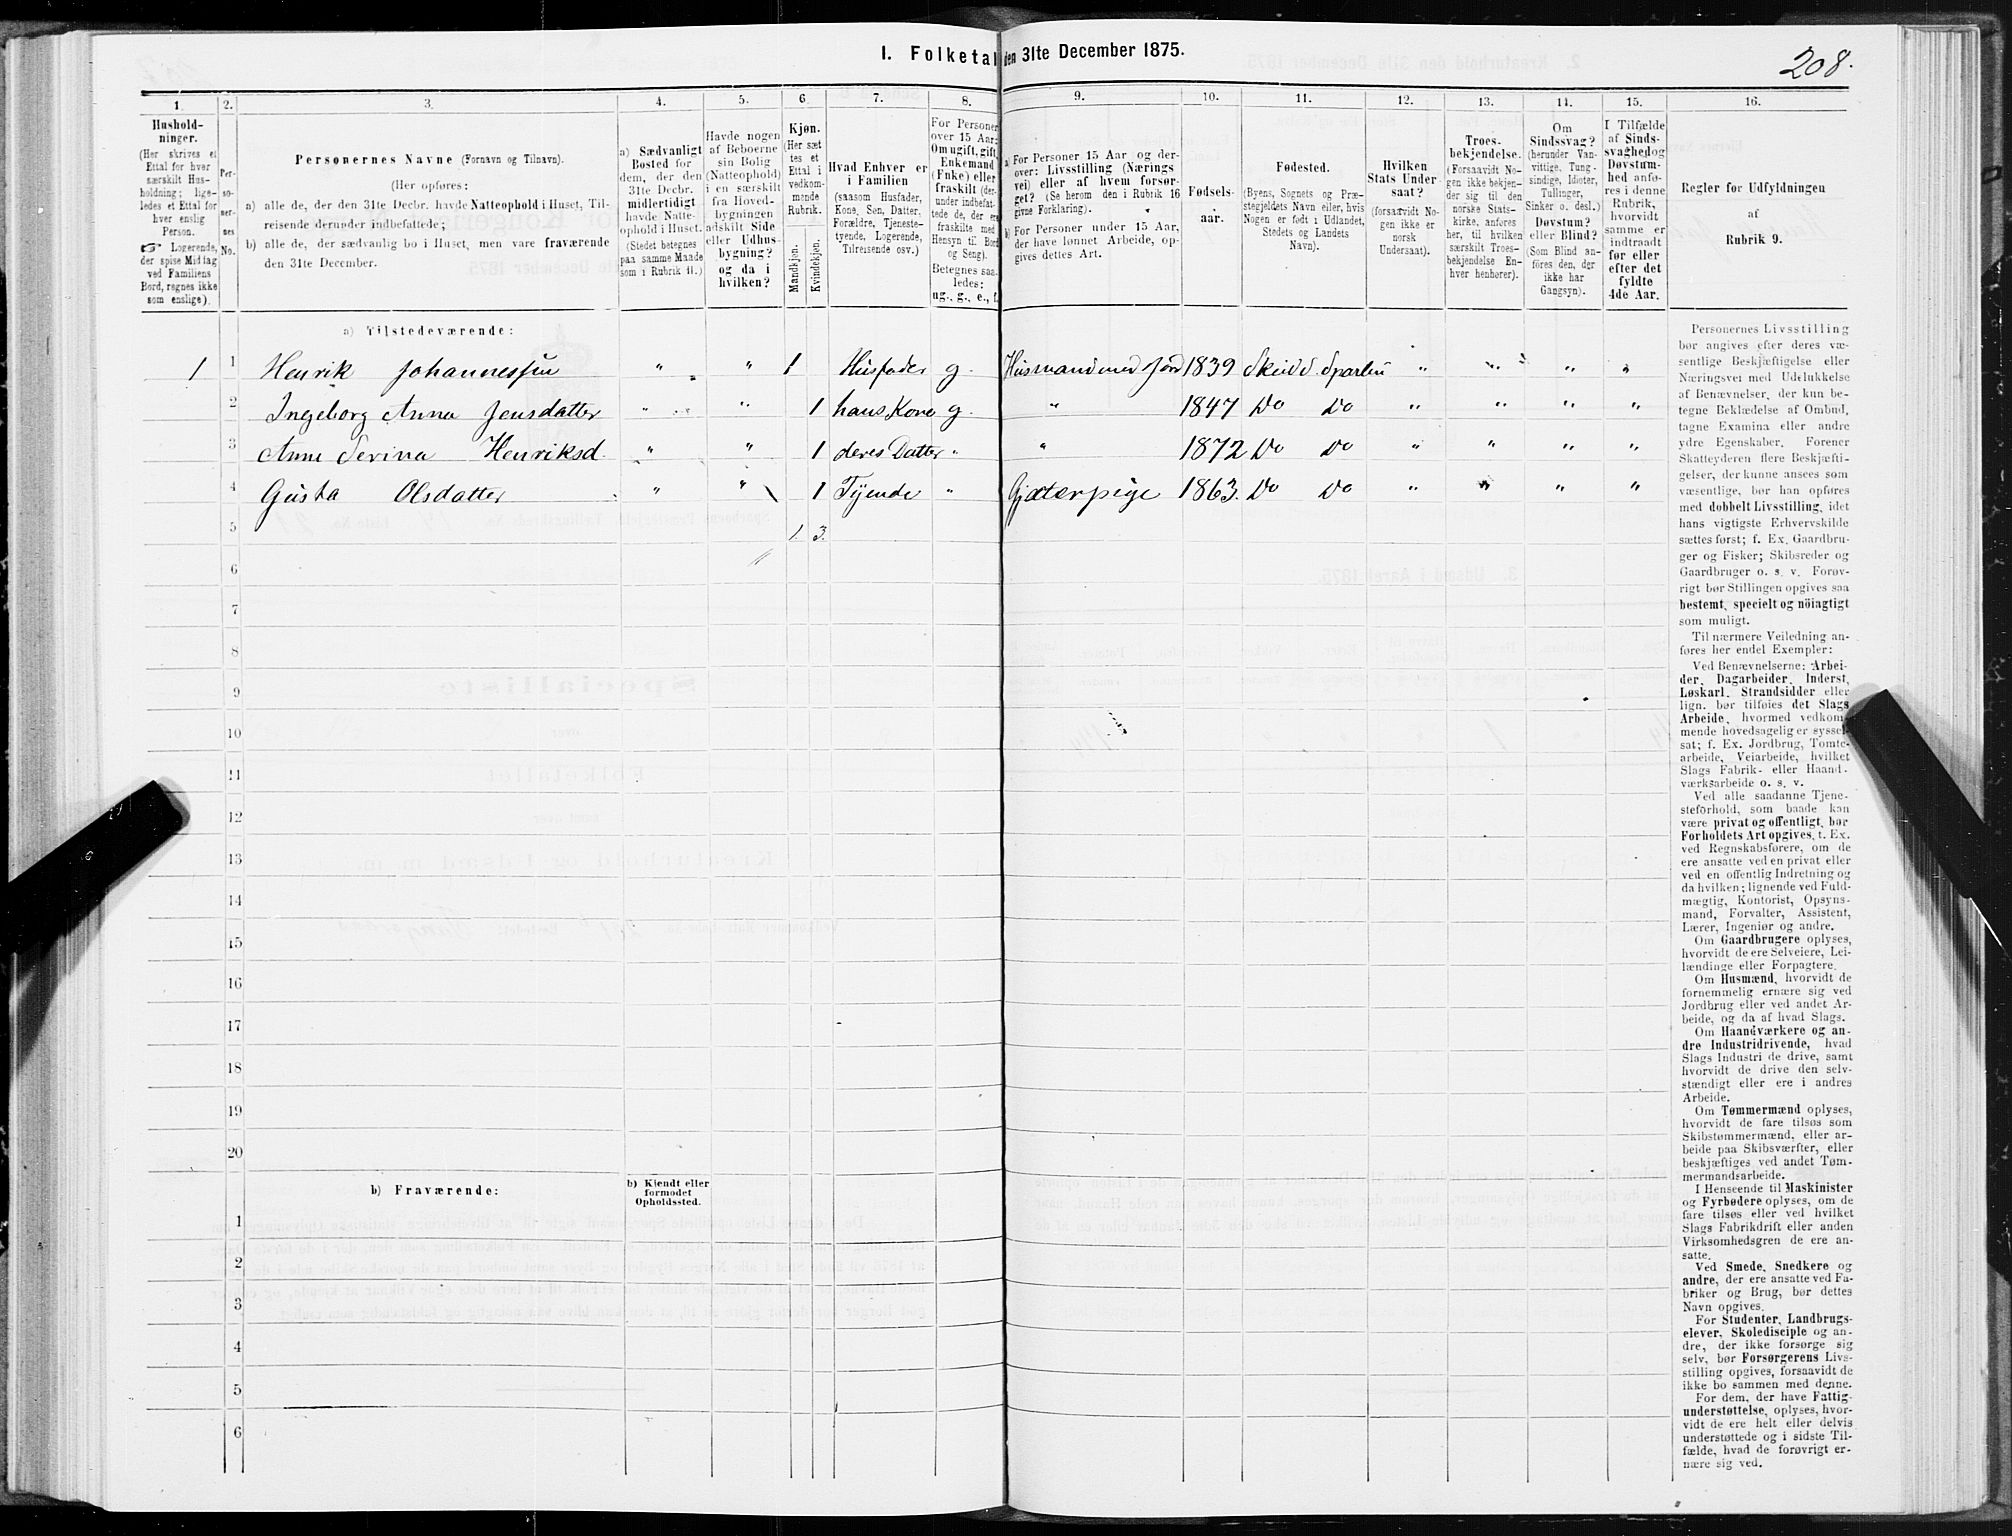 I. Folketal den 31te December 1875.
208.
1.
2.
3.
4.
5.
6.
7.
8.
9.
10.
11.
12.
13.
14.
15.
16.
Hushold-
ninger.
(Her skrives et
Ettal for hver
særskilt Hus-
holdning; lige-
ledes et Ettal for
hver enslig
Person.
☞ Logerende,
der spise Middag
ved Familiens
Bord, regnes ikke
som enslige).
Per-
so-
ner-
nes
No.
Personernes Navne (Fornavn og Tilnavn).
(Her opføres:
a) alle de, der den 31te Decbr. havde Natteophold i Huset, Til-
reisende derunder indbefattede;
b) alle de, der sædvanlig bo i Huset, men vare fraværende
den 31te December.
a) Sædvanligt
Bosted for
dem, der den
31te Decbr.
midlertidigt
havde Natte-
ophold i Huset.
(Stedet betegnes
paa samme Maade
som i Rubrik 11.)
Havde nogen
af Beboerne
sin Bolig
(Natteophold)
i en særskilt
fra Hoved-
bygningen
adskilt Side
eller Udhus-
bygning?
og da i
hvilken?
Kjøn.
(Her sæt
tes et
Ettal i
vedkom-
mende
Rubrik.
Mandkjøn.
Kvindekjøn.
Hvad Enhver er
i Familien
(saasom Husfader,
Kone, Søn, Datter,
Forældre, Tjeneste-
tyende, Logerende,
Tilreisende osv.)
For Personer
over 15 Aar:
Om ugift, gift,
Enkemand
(Enke) eller
fraskilt (der-
under indbefat-
tede de, der ere
fraskilte med
Hensyn til Bord
og Seng).
Betegnes saa-
ledes:
ug., g., e., f.
a) For Personer 15 Aar og der-
over: Livsstilling (Nærings
vei) eller af hvem forsør-
get? (Se herom den i Rubrik 16
givne Forklaring).
b) For Personer under 15 Aar,
der have lønnet Arbeide, op-
gives dettes Art.
Fødsels-
aar.
Fødested.
(Byens, Sognets og Præ-
stegjeldets Navn eller, hvis
Nogen er født i Udlandet,
Stedets og Landets
Navn).
Hvilken
Stats Under
saat?
(forsaavidt No-
gen ikke er
norsk
Undersaat).
Troes-
bekjendelse.
(Forsaavidt No-
gen ikke bekjen-
der sig til den
norske Stats-
kirke, anføres
her, til hvilken
særskilt Troes-
bekjendelse En-
hver henhører).
Om
Sindssvag?
(herunder Van-
vittige, Tung-
sindige, Idioter,
Tullinger,
Sinker o. desl.)
Døvstum?
eller Blind?
(Som Blind an-
føres den, der
ikke har
Gangsyn).
I Tilfælde
af Sinds-
svaghed og
Døvstum-
hed anfø-
res i denne
Rubrik,
hvorvidt
samme er
indtraadt
før eller
efter det
fyldte
4de Aar.
Regler før Udfyldningen
af
Rubrik 9.
a) Tilstedeværende:
1 1 Henrik Johannessen " " 1 Husfader g. Husmand med Jord 1839 Skei S. Sparbu " " " "
2 Ingeborg Anna Jensdatter " " 1 hans Kone g. " 1847 Do Do " " " "
3 Anne Serina Henriksd. " " 1 deres Datter " " 1872 Do Do " " " "
4 Gusta Olsdatter " " 1 Tyende " Gjæterpige 1863. Do Do " " " "
5 1. 3.
6
7
8
9
10
11
12
13
14
15
16
17
18
19
20
b) Fraværende:
b) Kjendt eller
formodet
Opholdssted.
1
2
3
4
5
6
Personernes Livsstilling
bør angives efter deres væ-
sentlige Beskjæftigelse eller
Næringsvei med Udelukkelse
af Benævnelser, der kun be-
tegne Beklædelse af Ombud,
tagne Examina eller andre
ydre Egenskaber. Forener
Skatteyderen flere Beskjæfti-
gelser, der kunne ansees som
væsentlige, bør han opføres
med dobbelt Livsstilling, idet
hans vigtigste Erhvervskilde
sættes først; f. Ex. Gaardbru-
ger og Fisker; Skibsreder og
Gaardbruger o. s. v. Forøv-
rigt bør Stillingen opgives saa
bestemt, specielt og nöiagtigt
som muligt.
Til nærmere Veiledning an-
føres her endel Exempler:
Ved Benævnelserne: Arbei-
der, Dagarbeider, Inderst,
Løskarl, Strandsidder eller
lign. bør tilføies det Slags
Arbeide, hvormed vedkom-
mende hovedsagelig er syssel-
sat; f. Ex. Jordbrug, Tomte-
arbeide, Veiarbeide, hvilket
Slags Fabrik- eller Haand-
værksarbeide o. s. v.
Ved alle saadanne Tjene-
steforhold, som baade kan
være privat og offentligt, bør
Forholdets Art opgives, t. Ex.
ved Regnskabsførere, om de
ere ansatte ved en privat eller
ved en offentlig Indretning og
da hvilken; lignende ved Fuld-
mægtig, Kontorist, Opsyns-
mand, Forvalter, Assistent,
Lærer, Ingeniør og andre.
Om Gaardbrugere oplyses,
hvorvidt de ere Selveiere, Lei-
lændinge eller Forpagtere.
Om Husmænd, hvorvidt de
fornemmelig ernære sig ved
Jordbrug eller ved andet Ar-
beide, og da af hvad Slags.
Om Haandværkere og an-
dre Industridrivende, hvad
Slags Industri de drive, samt
hvorvidt de drive den selv-
stændigt eller ere i andres
Arbeide.
Om Tømmermænd oplyses,
hvorvidt de fare tilsøs som
Skibstømmermænd, eller ar-
beide paa Skibsværfter, eller
beskjæftiges ved andet Tøm-
mermandsarbeide.
I Henseende til Maskinister
og Fyrbødere oplyses, om de
fare tilsøs eller ved hvilket
Slags Fabrikdrift eller anden
Virksomhedsgren de ere an-
satte.
Ved Smede, Snedkere og
andre, der ere ansatte ved Fa-
briker og Brug, bør dettes
Navn opgives.
For Studenter, Landbrugs-
elever, Skoledisciple og an-
dre, der ikke forsørge sig
selv, bør Forsørgerens Livs-
stilling opgives, forsaavidt de
ikke bo sammen med denne.
For dem, der have Fattig-
understøttelse, oplyses, hvor-
vidt de ere helt eller delvis
understøttede og i sidste Til-
fælde, hvad de forøvrigt er-
nære sig ved.